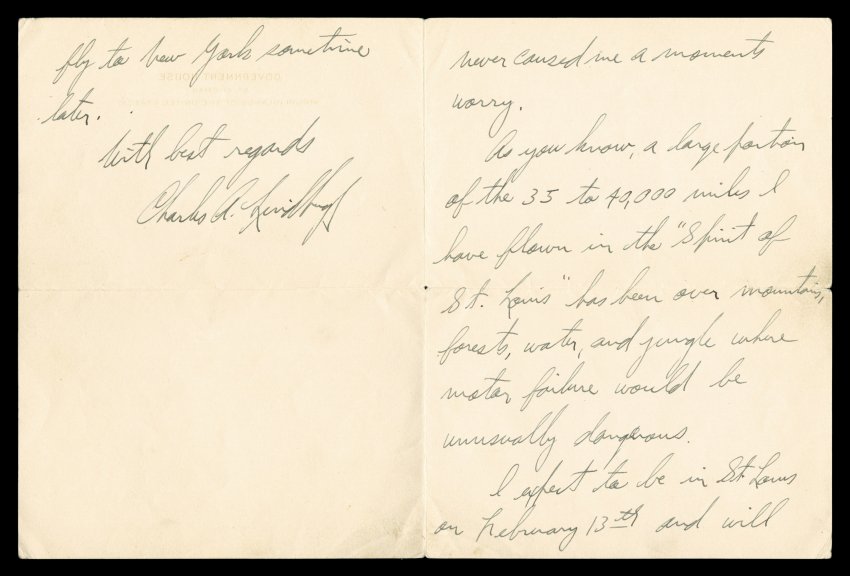 never caused me a moments
worry.
As you know, a large portion
of the 35 to 40,000 miles I
have flown in the "Spirit of
St. Louis" has been over mountains,
forests, water, and jungle where
motor failure would be
unusually dangerous.
I expect to be in St. Louis
on February 13th and will
fly to New York sometime
later.
With best regards
Charles A. Lindbergh